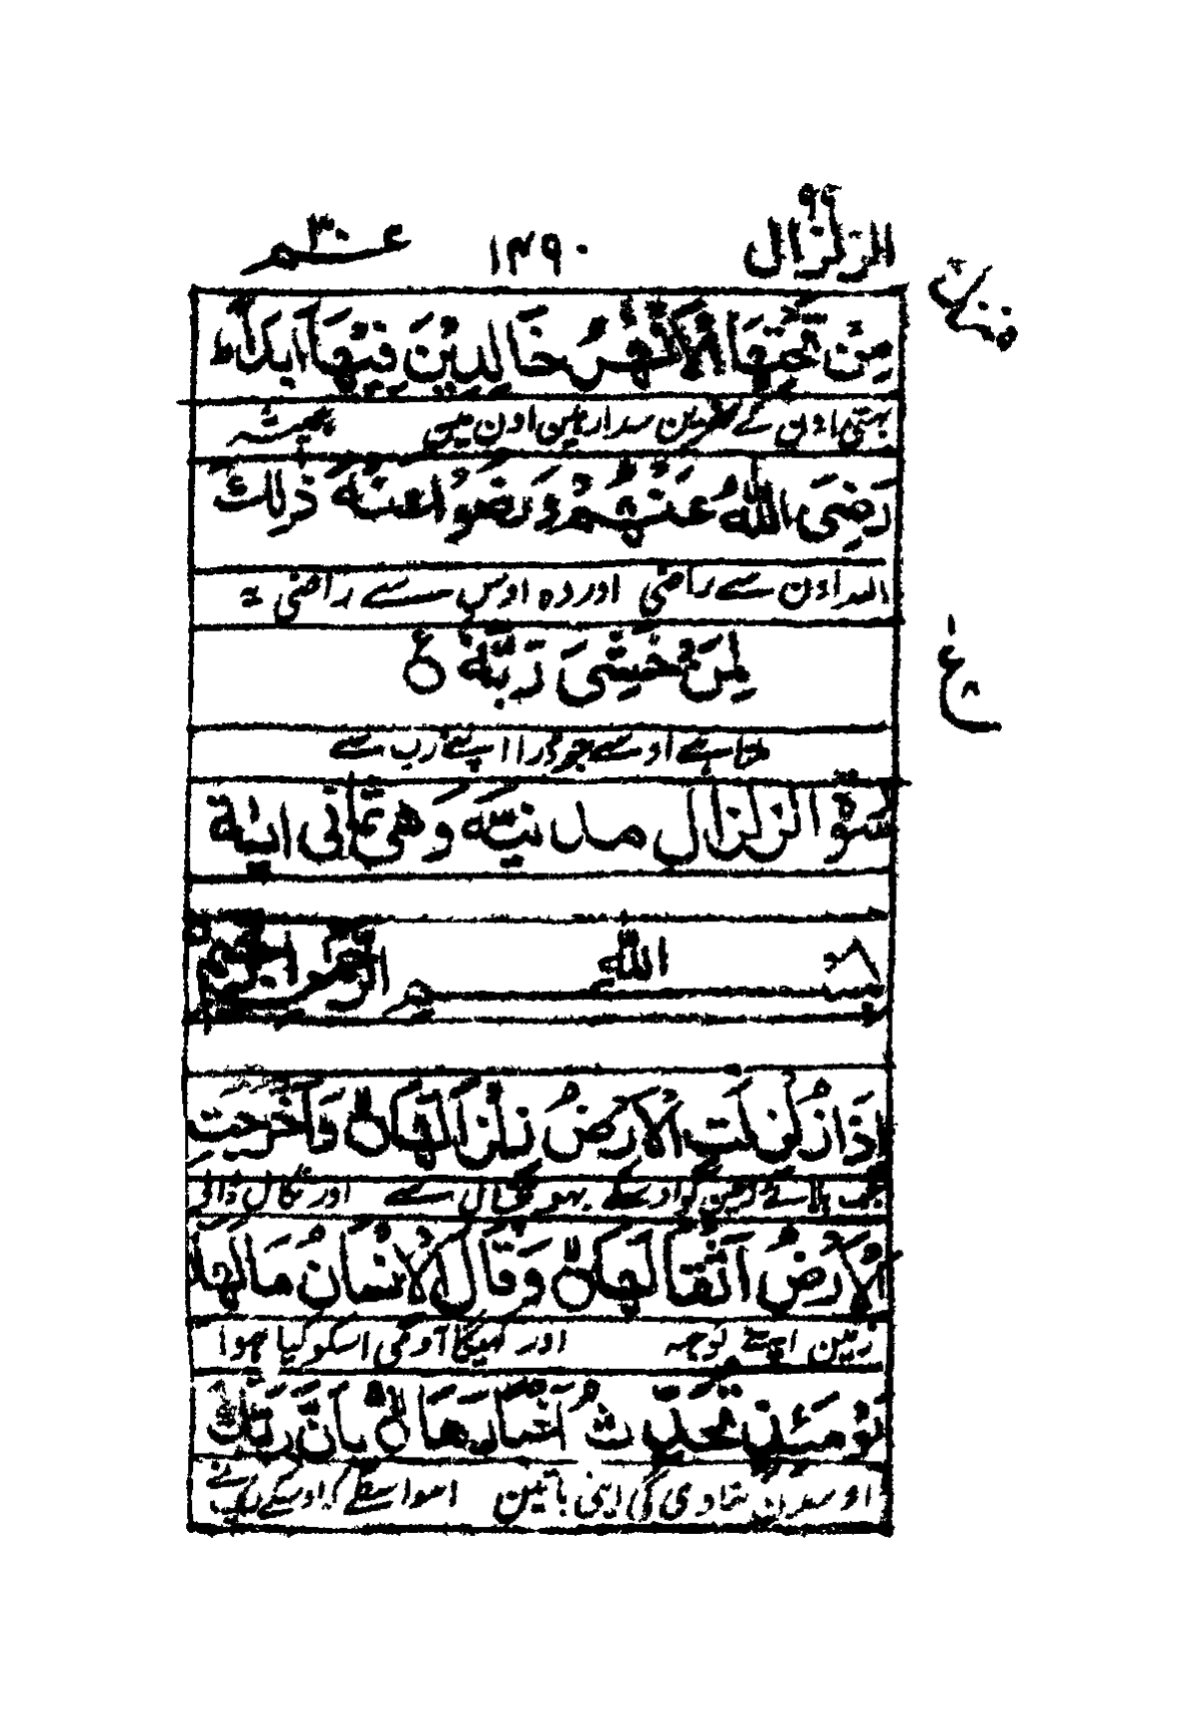 الزلزال ٩٩
١٤٩٠
عـم ٣٠
منزل
مِنْ تَحْتِهَا الْاَنْهٰرُ خَالِدِيْنَ فِيْهَا اَبَدًا ط
بہتی اون کے نہرین سدا رہین اون مین ہمیشہ
رَضِىَ اللّٰهُ عَنْهُمْ وَرَضُوْا عَنْهُ ذٰلِكَ
اللہ اون سے راضی اور وہ اوس سے راضی یہ
لِمَنْ خَشِىَ رَبَّهٗ ع
ع ٨
ملتا ہے اوسے جو ڈرا اپنے رب سے
سورة الزلزال مدنيّة وَهى ثمانى اٰية
بسم اللّٰه الرحمن الرحيم
اِذَا زُلْزِلَتِ الْاَرْضُ زِلْزَالَهَا لا وَاَخْرَجَتِ
جب ہلائے زمین کو اوسکے بھونچال سے اور نکال ڈالے
الْاَرْضُ اَثْقَالَهَا لا وَقَالَ الْاِنْسَانُ مَا لَهَا
زمین اپنے بوجھ اور کہیگا آدمی اسکو کیا ہوا
يَوْمَئِذٍ تُحَدِّثُ اَخْبَارَهَا لا بِاَنَّ رَبَّكَ
اوسدن بتاویگی اپنی باتین اسواسطے کہ اوسکے رب نے